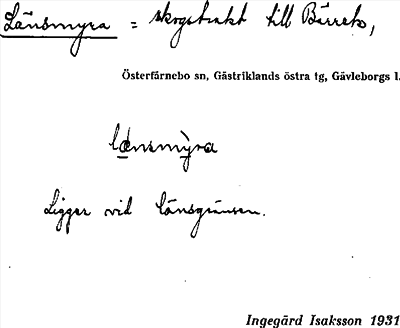 Länsmyra = skogstrakt till Bärrek,
Österfärnebo sn, Gästriklands östra tg, Gävleborgs l.
lænsmỳra
Ligger vid länsgränsen.
Ingegärd Isaksson 1931